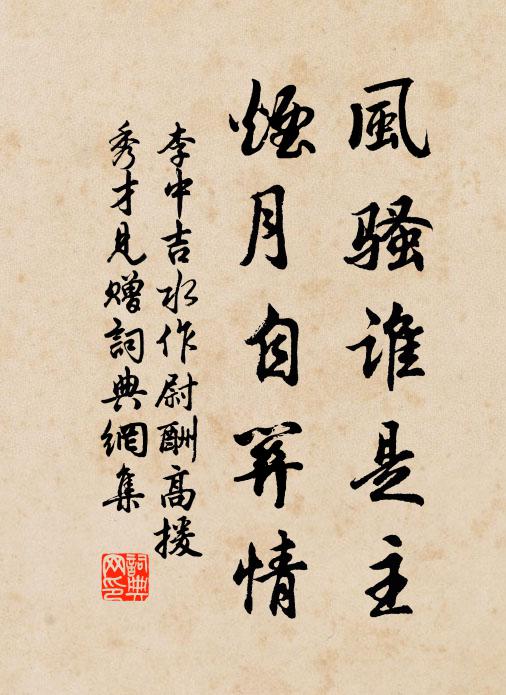 風騷誰是主
煙月自關情
李中吉水作尉酬高援
秀才見贈詞典網集
詞典网印